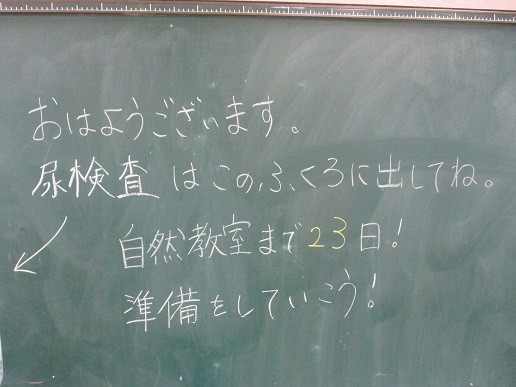 おはようございます。
尿検査はこのふくろに出してね。
自然教室まで23日!
準備をしていこう!